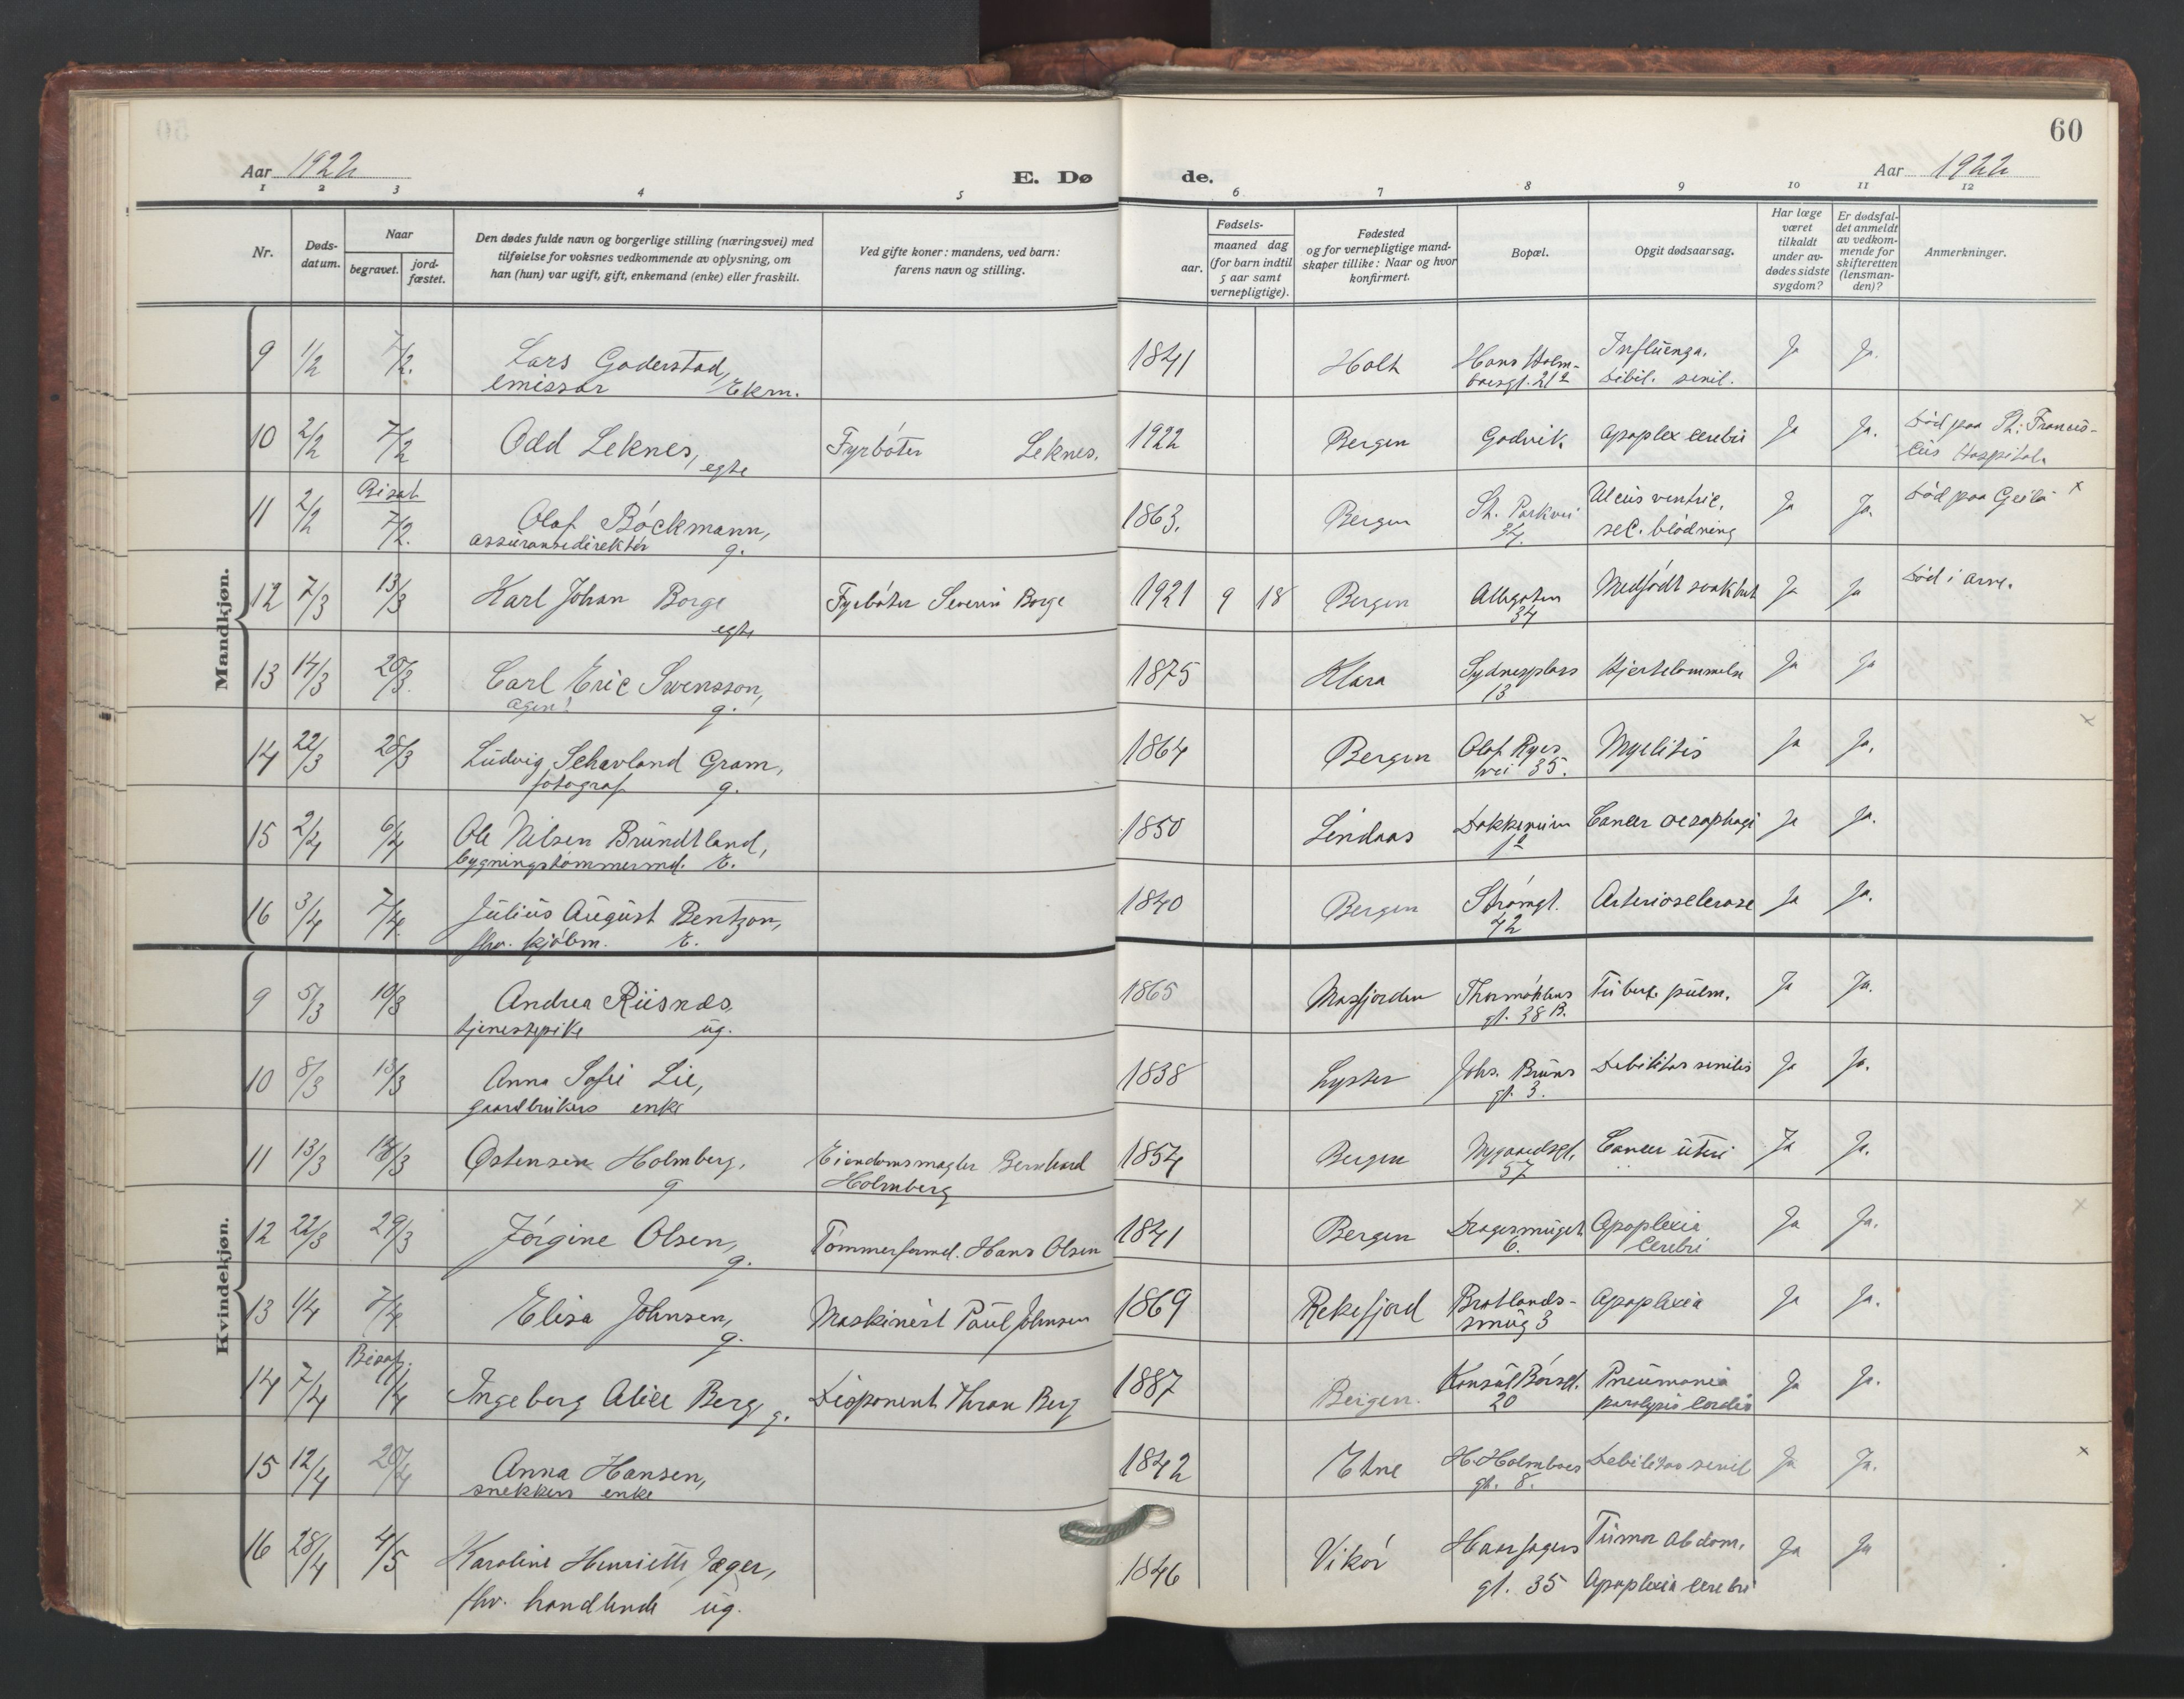 60
Aar 1922
E. Dø de.
Aar 1922
1 2 3 4 5 6 7 8 9 10 11 12
Nr.
Døds-
datum.
Naar
begravet.
jord-
fæstet.
Den dødes fulde navn og borgerlige stilling (næringsvei) med
tilføielse for voksnes vedkommende av oplysning, om
han (hun) var ugift, gift, enkemand (enke) eller fraskilt.
Ved gifte koner: mandens, ved barn:
farens navn og stilling.
Fødsels-
aar.
maaned dag
(for barn indtil
5 aar samt
vernepligtige).
Fødested
og for vernepligtige mand-
skaper tillike: Naar og hvor
konfirmert.
Bopæl.
Opgit dødsaarsag.
Har læge
været
tilkaldt
under av-
dødes sidste
sygdom?
Er dødsfal-
det anmeldt
av vedkom-
mende for
skifteretten
(lensman-
den)?
Anmerkninger.
Mandkjøn.
9 1/2 7/2. Lars Goderstad, 1841 Holt Hans Holm- Influenza. Ja Ja.
emissær Ekm. boesgt. 21a Debil. senil.
10 2/2 7/2 Odd Leknes, Fyrbøter Leknes. 1922 Bergen Godvik Apoplex cerebri Ja Ja. Død paa St. Francis-
egte cus Hospital.
Bisat
11 2/2 7/2. Olaf Böckmann, 1863. Bergen St. Parkvei Ulcus ventric. Ja Ja. Død paa Geilo x
assuransedirektør g. 34. sec. blødning
12 7/3 13/3 Karl Johan Borge Fyrbøter Severin Borge 1921 9 18 Bergen Allégaten Medfødt svakhet Ja Ja Død i Arne.
egte 34
13 14/3 20/3. Carl Eric Swensson, 1875 Klara Sydnesplass Hjertelammelse Ja Ja
agent g. 13
14 22/3 28/3 Ludvig Schavland Gram, 1864 Bergen Olaf Ryes Myelitis Ja Ja. x
fotograf g. vei 35.
15 2/4 6/4 Ole Nilsen Brundtland, 1850 Lindaas Dokkeveien Cancer oesophagi Ja Ja.
bygningstømmermd. E. 1a
16 3/4 7/4. Julius August Bentzon, 1840 Bergen Strømgt. Arteriosclerose Ja Ja.
fhv. kjøbm. E. 42
Kvindekjøn.
9 5/3 10/3 Andrea Riisnæs, 1865 Masfjorden Thormøhlens Tuberk. pulm. Ja Ja.
tjenestepike ug. gt. 38 B.
10 8/3 13/3 Anna Sofie Lie, 1838 Lyster Johs. Bruns Debilitas senilis Ja Ja.
gaardbrukers enke gt. 3.
11 13/3 18/3 Ostensen Holmberg, Eiendomsmægler Bernhard 1854 Bergen Nygaardsgt. Cancer uteri Ja Ja.
g Holmberg 57
12 22/3 29/3 Jørgine Olsen, Tømmerformd. Hans Olsen 1841 Bergen Dragesmuget Apoplexia Ja Ja. x
g. 6. cerebri
13 1/4 7/4 Elisa Johnsen, Maskinist Paul Johnsen 1869 Rekefjord Bratlands- Apoplexia Ja Ja.
g. smug 3
Bisat.
14 7/4 11/4 Ingeborg Alice Berg g. Disponent Thran Berg 1887 Bergen. Konsul Børsgt. Pneumonia Ja Ja.
20 paralysis cordis
15 12/4 20/4 Anna Hansen, 1842 Etne H. Holmboes Debilitas senil Ja Ja. x
snekkers enke gt. 8.
16 28/4 4/5 Karoline Henriette Jæger, 1846 Vikør Haarfagers Tumor abdom. Ja Ja
fhv. handlende ug. gt. 35 Apoplexia cerebri